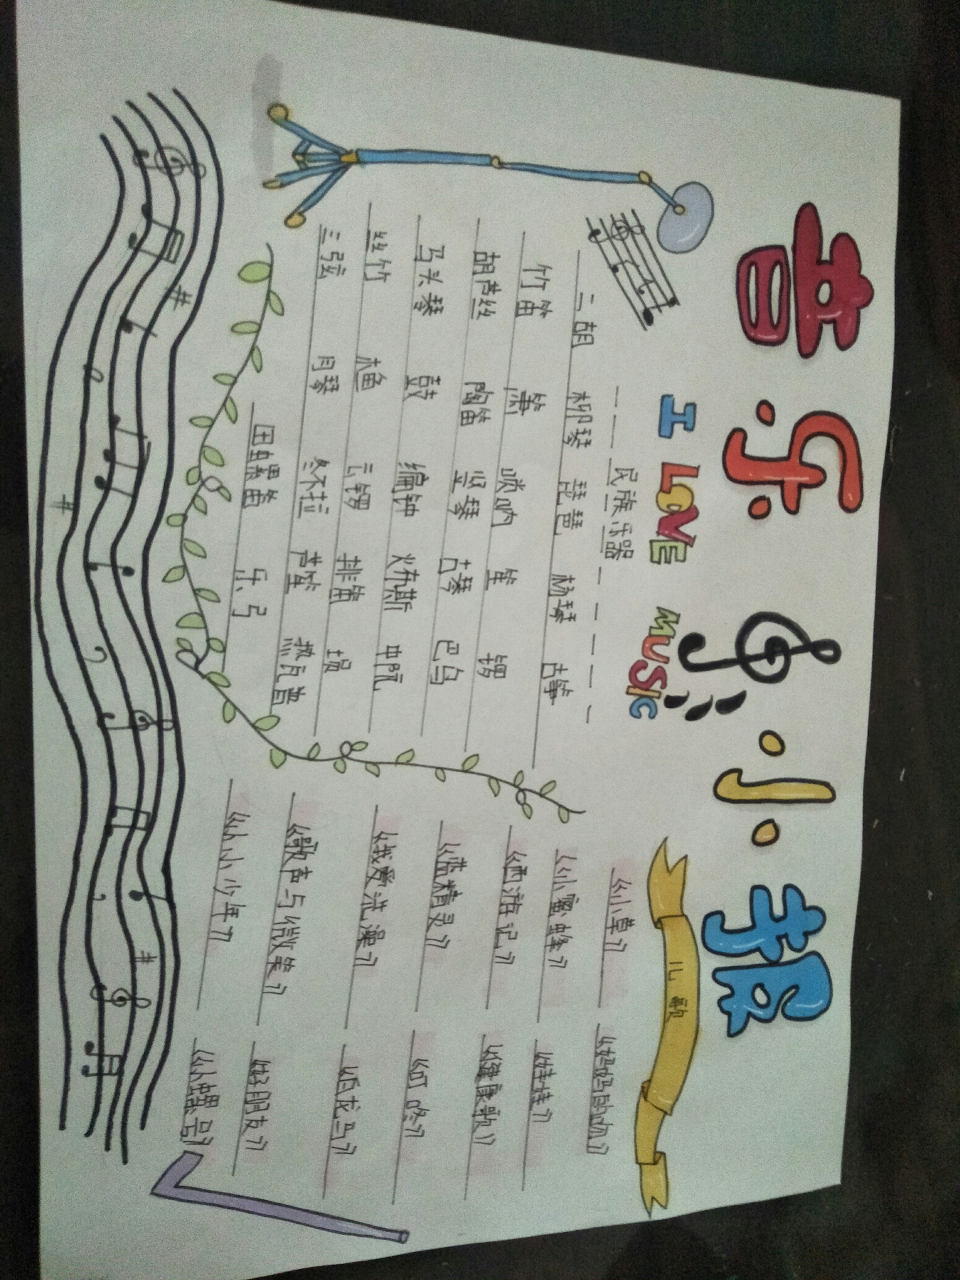 音乐小报
I LOVE MUSIC
民族乐器
二胡 柳琴 琵琶 杨琴 古筝
竹笛 箫 唢呐 笙 锣
胡芦丝 陶笛 竖琴 古琴 巴乌
马头琴 鼓 编钟 中阮
丝竹 木鱼 云锣 排笛 埙
三弦 月琴 冬不拉 芦笙 热瓦普
田螺笛 乐弓
儿歌
《小草》
《小蜜蜂》 《娃娃》
《西游记》 《健康歌》
《蓝精灵》 《叮咚》
《我爱洗澡》 《白龙马》
《歌声与微笑》 《好朋友》
《小小少年》 《小螺号》